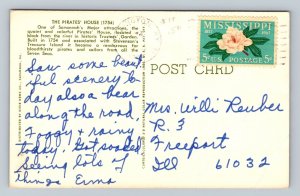 THE PIRATES' HOUSE (1754)
One of Savannah's Major attractions, the
quaint and colorful Pirates' House, located a
block from the river in historic Trustees' Garden.
Built in 1754 and associated with Stevenson's
Treasure Island it became a rendezvous for
bloodthirsty pirates and sailors from all the
Seven Seas.
MISSISSIPPI
1817 1967
5c U.S. POSTAGE 5c
POST CARD
Saw some beaut
iful scenery to
day also a bear
along the road,
Foggy & rainy
today. Got soaked
Seeing lots of
things Erma
Mrs. Willi Reuber
R. 3
Freeport
Ill 61032